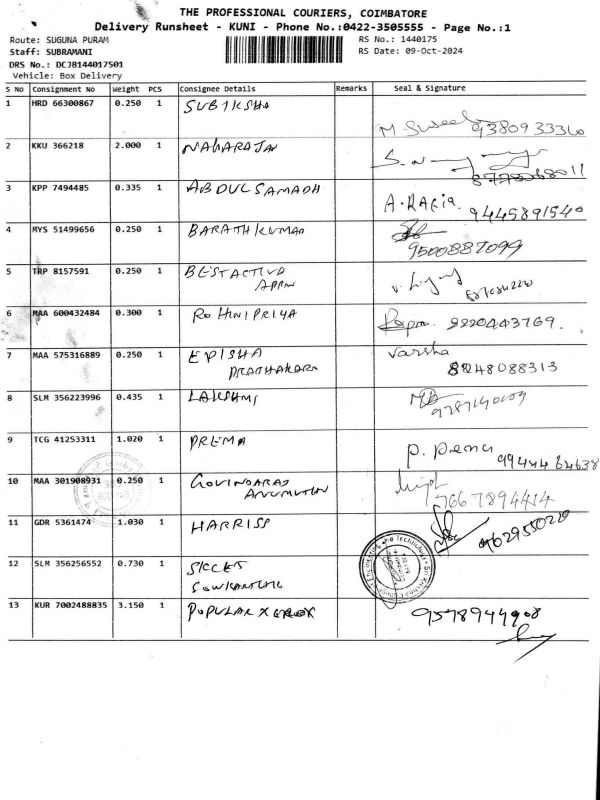 THE PROFESSIONAL COURIERS, COIMBATORE
Delivery Runsheet - KUNI - Phone No.:0422-3505555 - Page No.:1
Route: SUGUNA PURAM
RS No.: 1440175
Staff: SUBRAMANI
RS Date: 09-Oct-2024
DRS No.: DCJB144017501
Vehicle: Box Delivery
S No Consignment No Weight PCS Consignee Details Remarks Seal & Signature
1 HRD 66300867 0.250 1 SUBIKSHA
9380933360
2 KKU 366218 2.000 1 MAHARAJAN
3 KPP 7494485 0.335 1 ABDUL SAMADH
A. RAFIA. 9445891540
4 MYS 51499656 0.250 1 BARATHKUMAR
9500887099
5 TRP 8157591 0.250 1 BESTACTIVA
6 MAA 600432484 0.300 1 ROHINIPRIYA
9220443769.
7 MAA 575316889 0.250 1 Varsha
PRABHAKARA 8248088313
8 SLM 356223996 0.435 1 LAKSHMI
9 TCG 41253311 1.020 1 PREMA
P. Prema 99444 64638
10 MAA 301908931 0.250 1 GOVINDARAJ
7667894414
11 GDR 5361474 1.030 1 HARRISS
9629550220
12 SLM 356256552 0.730 1 SKCET
13 KUR 7002488835 3.150 1 POPULAR XEROX 9578944908